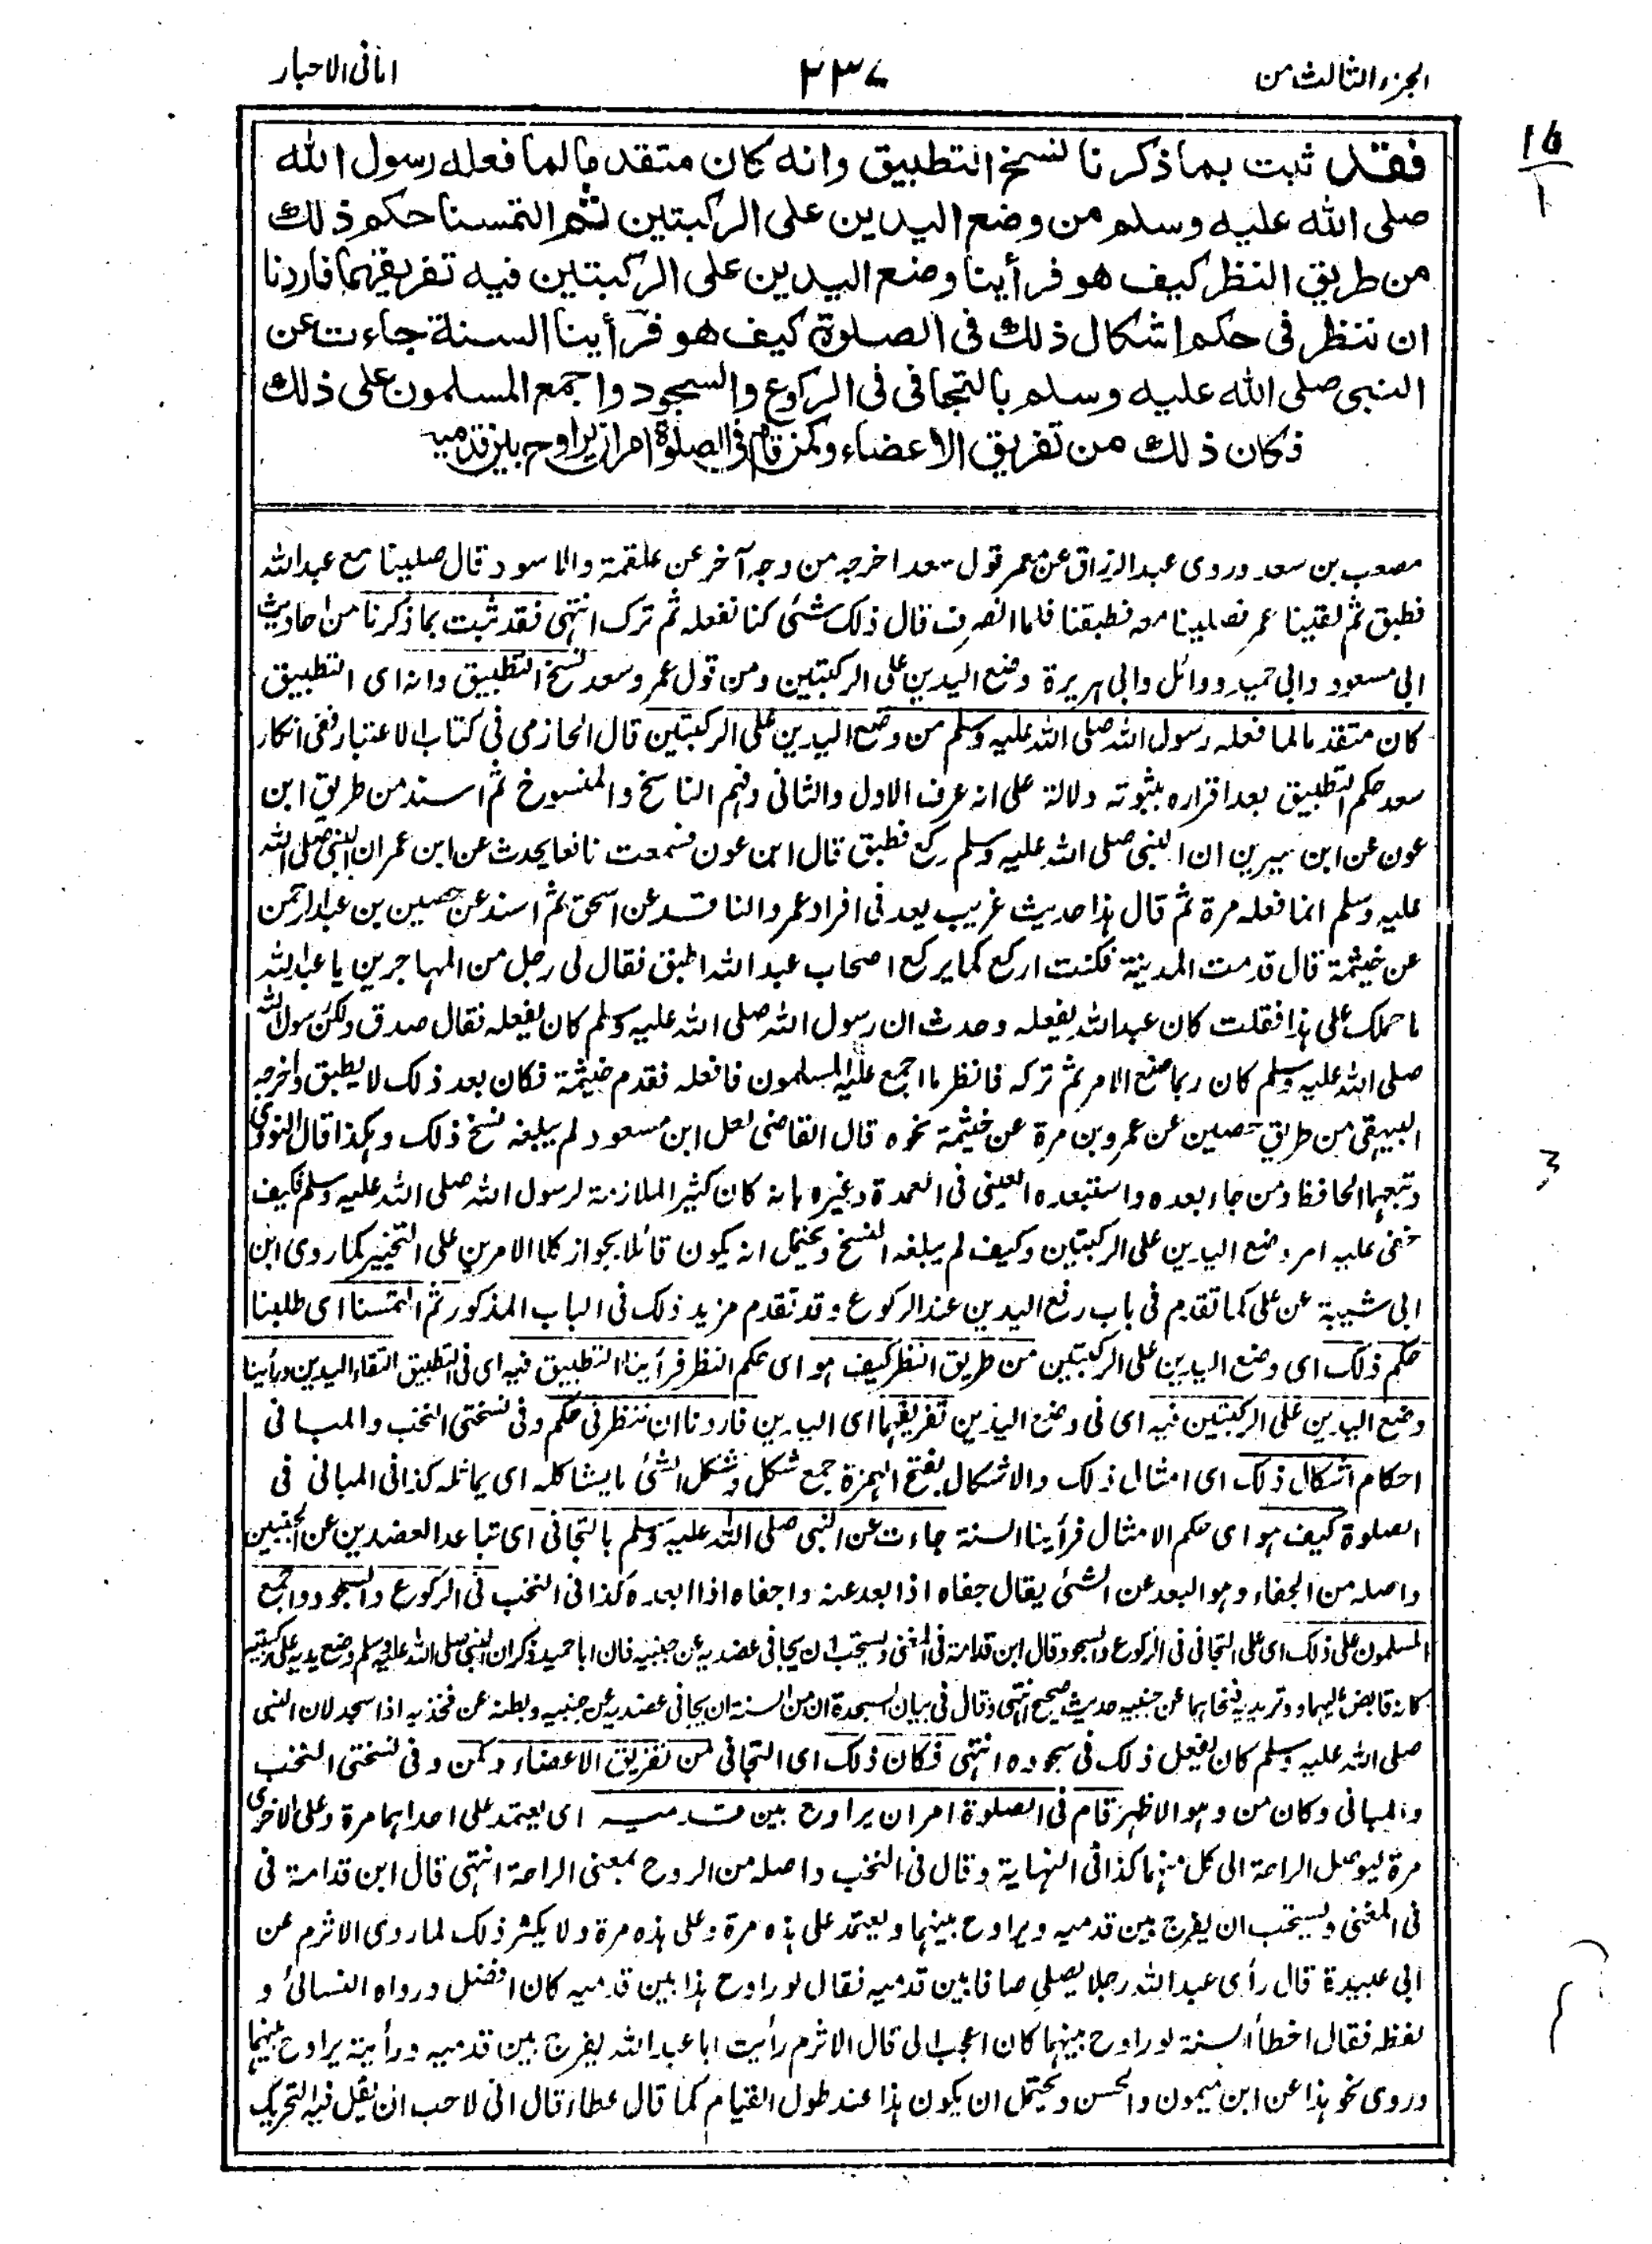 الجزء الثالث من
٢٣٧
امانی الاحبار
فقد ثبت بما ذكرنا نسخ التطبيق وانه كان متقدما لما فعله رسول الله
صلى الله عليه وسلم من وضع اليدين على الركبتين ثم التمسنا حكم ذلك
من طريق النظر كيف هو فرأينا وضع اليدين على الركبتين فيه تفريقهما فاردنا
ان ننظر فى حكم اشكال ذلك فى الصلوة كيف هو فرأينا السنة جاءت عن
النبى صلى الله عليه وسلم بالتجافى فى الركوع والسجود واجمع المسلمون على ذلك
فكان ذلك من تفريق الاعضاء وكمن قام فى الصلوة امر ان يراوح بين قدميه
مصعب بن سعد وروى عبد الرزاق عن عمر قول سعد اخرجه من وجه آخر عن علقمة والاسود قال صلينا مع عبد الله
فطبق ثم لقينا عمر فصلينا معه فطبقنا فلما انصرف قال ذلك شئ كنا نفعله ثم ترك انتهى فقد ثبت بما ذكرنا من احاديث
ابى مسعود وابى حميد ووائل وابى هريرة وضع اليدين على الركبتين ومن قول عمر وسعد نسخ التطبيق وانه اى التطبيق
كان متقدما لما فعله رسول الله صلى الله عليه وسلم من وضع اليدين على الركبتين قال الحازمى فى كتاب الاعتبار ففى انكار
سعد حكم التطبيق بعد اقراره بثبوته دلالة على انه عرف الاول والثانى وفهم الناسخ والمنسوخ ثم اسند من طريق ابن
عون عن ابن سيرين ان النبى صلى الله عليه وسلم ركع فطبق قال ابن عون فسمعت نافعا يحدث عن ابن عمر ان النبى صلى الله
عليه وسلم انما فعله مرة ثم قال هذا حديث غريب يعد فى افراد عمرو الناقد عن اسحق ثم اسند عن حصين بن عبد الرحمن
عن خيثمة قال قدمت المدينة فكنت اركع كما يركع اصحاب عبد الله اطبق فقال لى رجل من المهاجرين يا عبد الله
ما حملك على هذا فقلت كان عبد الله يفعله وحدث ان رسول الله صلى الله عليه وسلم كان يفعله فقال صدق ولكن رسول الله
صلى الله عليه وسلم كان ربما صنع الامر ثم تركه فانظر ما اجمع عليه المسلمون فافعله فقدم خيثمة فكان بعد ذلك لا يطبق واخرجه
البيهقى من طريق حصين عن عمرو بن مرة عن خيثمة نحوه قال القاضى لعل ابن مسعود لم يبلغه نسخ ذلك وهكذا قال النووى
وتبعهما الحافظ ومن جاء بعده واستبعده العينى فى العمدة وغيره بانه كان كثير الملازمة لرسول الله صلى الله عليه وسلم فكيف
خفى عليه امر وضع اليدين على الركبتين وكيف لم يبلغه النسخ ويحتمل انه يكون قائلا بجواز كلا الامرين على التخيير كما روى ابن
ابى شيبة عن على كما تقدم فى باب رفع اليدين عند الركوع وقد تقدم مزيد ذلك فى الباب المذكور ثم التمسنا اى طلبنا
حكم ذلك اى وضع اليدين على الركبتين من طريق النظر كيف هو اى حكم النظر فرأينا التطبيق فيه اى فى التطبيق التقاء اليدين ورأينا
وضع اليدين على الركبتين فيه اى فى وضع اليدين تفريقهما اى اليدين فاردنا ان ننظر فى حكم وفى نسختى النخب والمبانى
احكام اشكال ذلك اى امثال ذلك والاشكال بفتح الهمزة جمع شكل وشكل الشئ ما يشاكله اى يماثله كذا فى المبانى فى
الصلوة كيف هو اى حكم الامثال فرأينا السنة جاءت عن النبى صلى الله عليه وسلم بالتجافى اى تباعد العضدين عن الجنبين
واصله من الجفاء وهو البعد عن الشئ يقال جفاه اذا بعد عنه واجفاه اذا ابعده كذا فى النخب فى الركوع والسجود واجمع
المسلمون على ذلك اى على التجافى فى الركوع والسجود وقال ابن قدامة فى المغنى ويستحب ان يجافى عضديه عن جنبيه فان ابا حميد ذكر ان النبى صلى الله عليه وسلم وضع يديه على ركبتيه
كانه قابض عليهما ووتر يديه فنحاهما عن جنبيه حديث صحيح انتهى وقال فى بيان السجدة ان من السنة ان يجافى عضديه عن جنبيه وبطنه عن فخذيه اذا سجد لان النبى
صلى الله عليه وسلم كان يفعل ذلك فى سجوده انتهى فكان ذلك اى التجافى من تفريق الاعضاء وكمن وفى نسختى النخب
والمبانى وكان من وهو الاظهر قام فى الصلوة امر ان يراوح بين قدميه اى يعتمد على احداهما مرة وعلى الاخرى
مرة ليوصل الراحة الى كل منهما كذا فى النهاية وقال فى النخب واصله من الروح بمعنى الراحة انتهى قال ابن قدامة فى
فى المغنى ويستحب ان يفرج بين قدميه ويراوح بينهما ويعتمد على هذه مرة وعلى هذه مرة ولا يكثر ذلك لما روى الاثرم عن
ابى عبيدة قال رأى عبد الله رجلا يصلى صافا بين قدميه فقال لو راوح هذا بين قدميه كان افضل ورواه النسائى و
لفظه فقال اخطأ السنة لو راوح بينهما كان اعجب الى قال الاثرم رأيت ابا عبد الله يفرج بين قدميه ورأيته يراوح بينهما
وروى نحو هذا عن ابن ميمون والحسن ويحتمل ان يكون هذا عند طول القيام كما قال عطاء قال انى لاحب ان يقل فيه التحريك